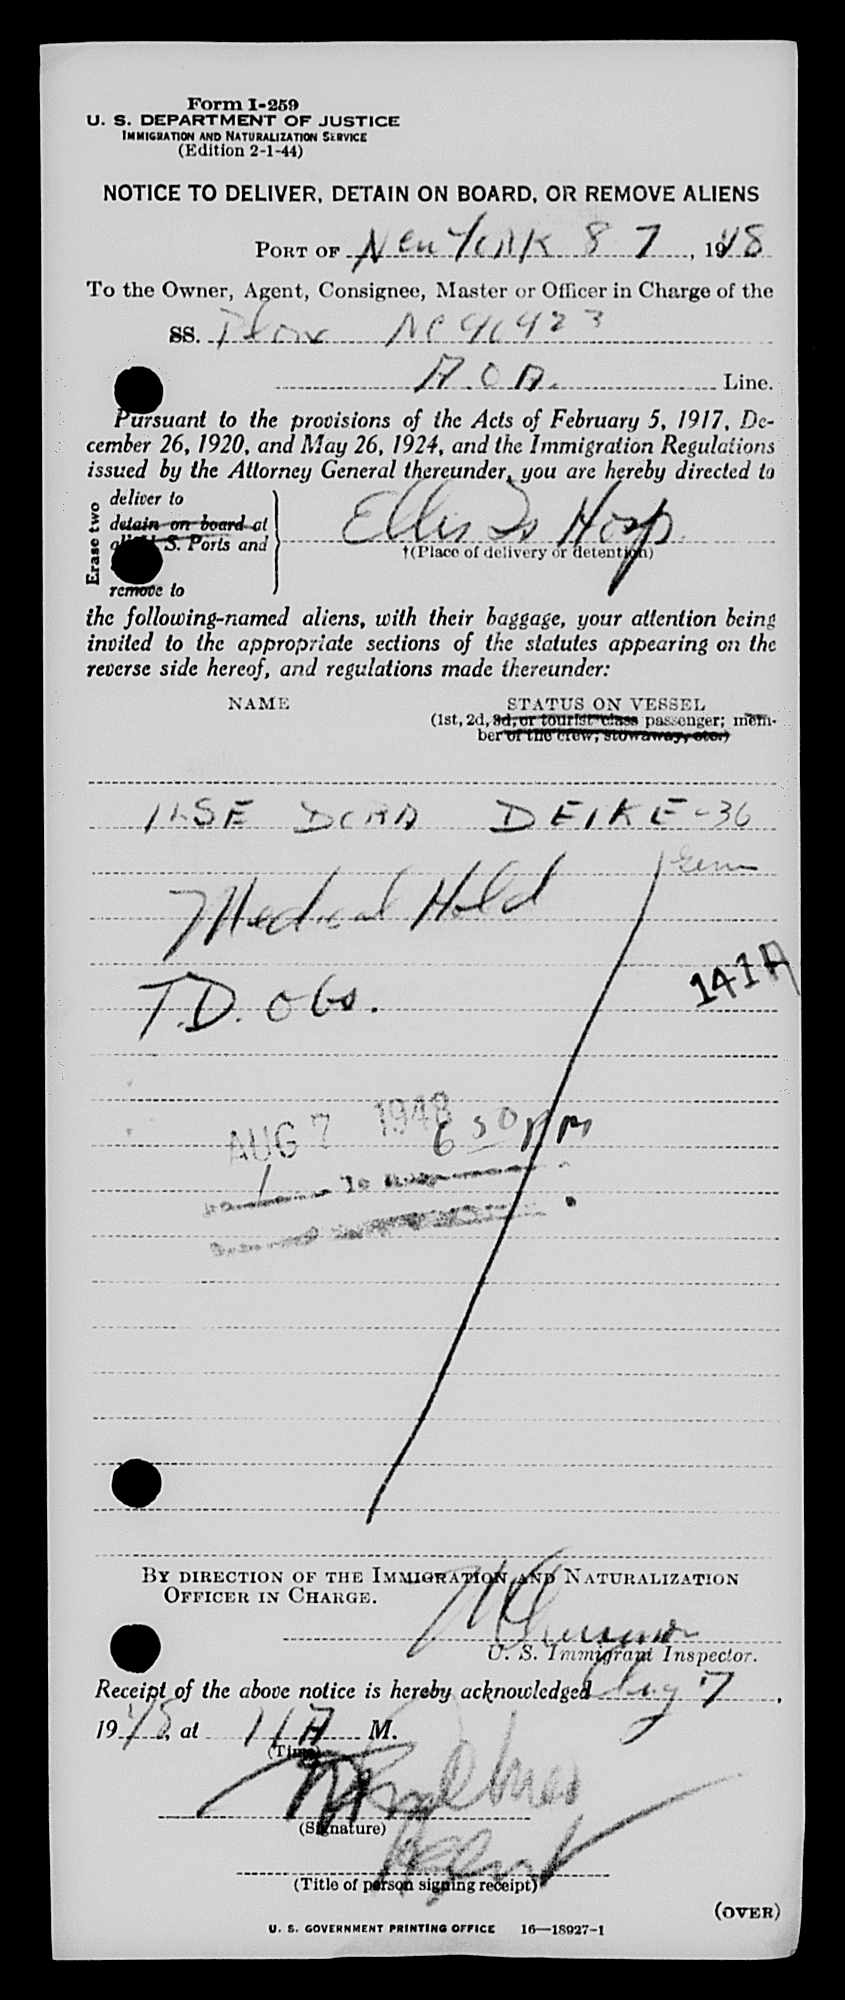 Form I-259
U. S. DEPARTMENT OF JUSTICE
IMMIGRATION AND NATURALIZATION SERVICE
(Edition 2-1-44)
NOTICE TO DELIVER, DETAIN ON BOARD, OR REMOVE ALIENS
PORT OF New York 8 7, 1948
To the Owner, Agent, Consignee, Master or Officer in Charge of the
SS. Plane NC 90923
A.O.A. Line.
Pursuant to the provisions of the Acts of February 5, 1917, De-
cember 26, 1920, and May 26, 1924, and the Immigration Regulations
issued by the Attorney General thereunder, you are hereby directed to
Erase two
deliver to
detain on board at
S. Ports and
remove to
Ellis Is Hosp
†(Place of delivery or detention)
the following-named aliens, with their baggage, your attention being
invited to the appropriate sections of the statutes appearing on the
reverse side hereof, and regulations made thereunder:
NAME STATUS ON VESSEL
(1st, 2d, 3d, or tourist class passenger; mem-
ber of the crew, stowaway, etc.)
ILSE DORA DEIKE - 36
Germ
Medical Hold
141A
T.D. Obs.
AUG 7 1948 6 50 PM
BY DIRECTION OF THE IMMIGRATION AND NATURALIZATION
OFFICER IN CHARGE.
U. S. Immigrant Inspector.
Receipt of the above notice is hereby acknowledged Aug 7,
1948, at 11 A M.
(Time)
(Signature)
Agent
(Title of person signing receipt)
(OVER)
U. S. GOVERNMENT PRINTING OFFICE 16—18927-1